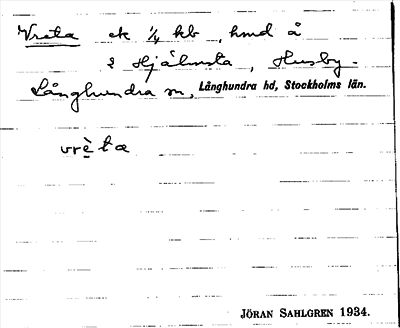 Vreta ek 1/4 kb, hmd å
2 Hjälmsta, Husby-
Långhundra sn, Långhundra hd, Stockholms län.
vrèta
JÖRAN SAHLGREN 1934.